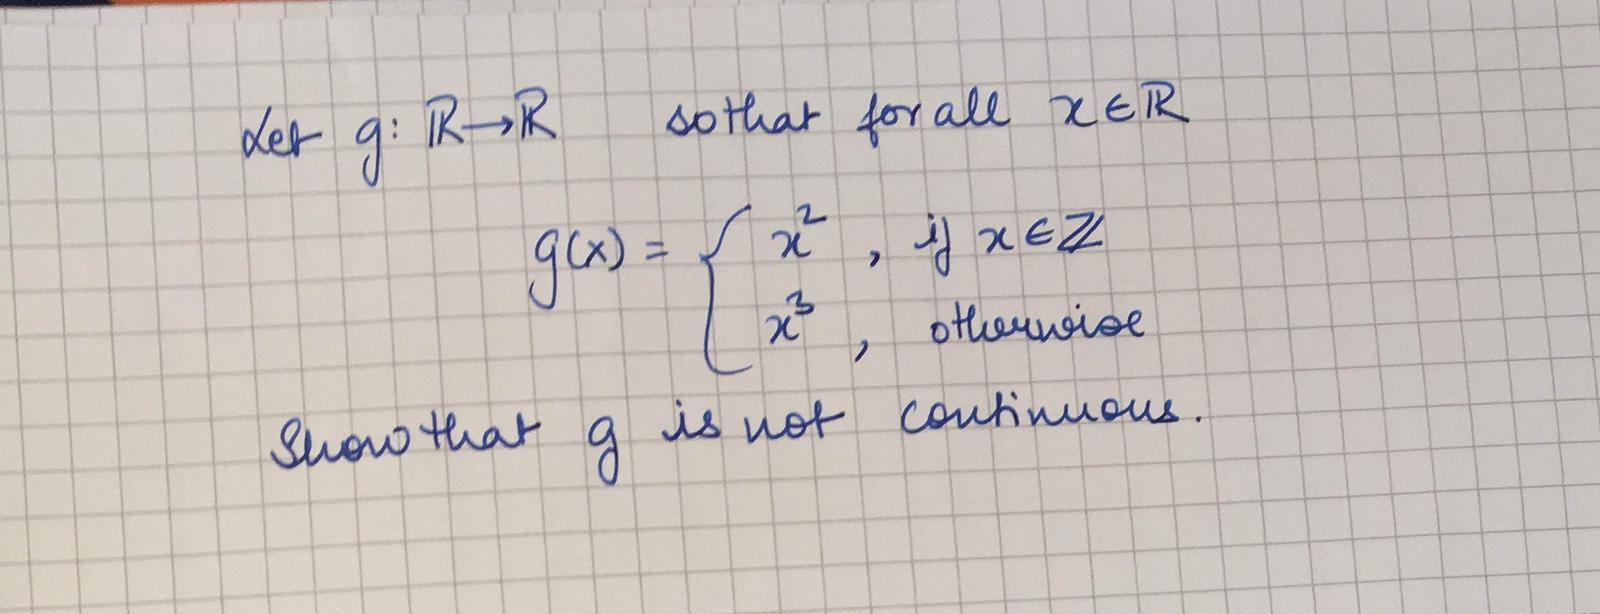 Let g: ℝ→ℝ so that for all x∈ℝ
g(x) = { x², if x∈ℤ
x³, otherwise
Show that g is not continuous.